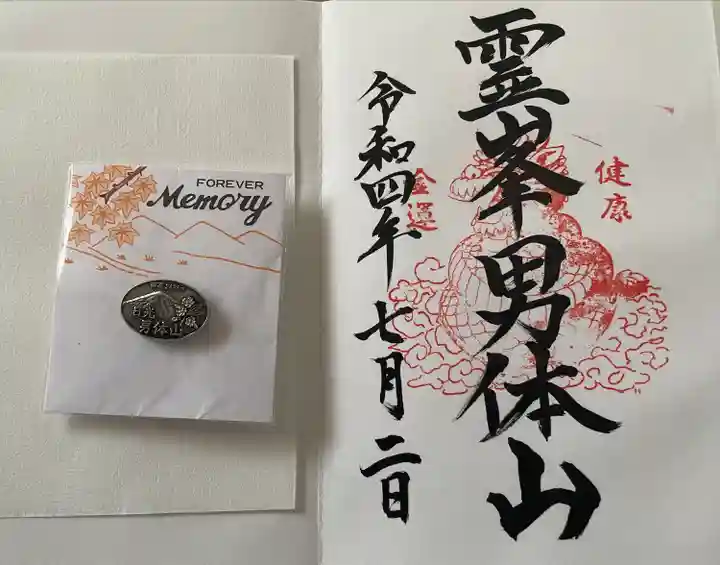 霊峯男体山
健康
金運
令和四年七月二日
FOREVER
Memory
日光
男体山